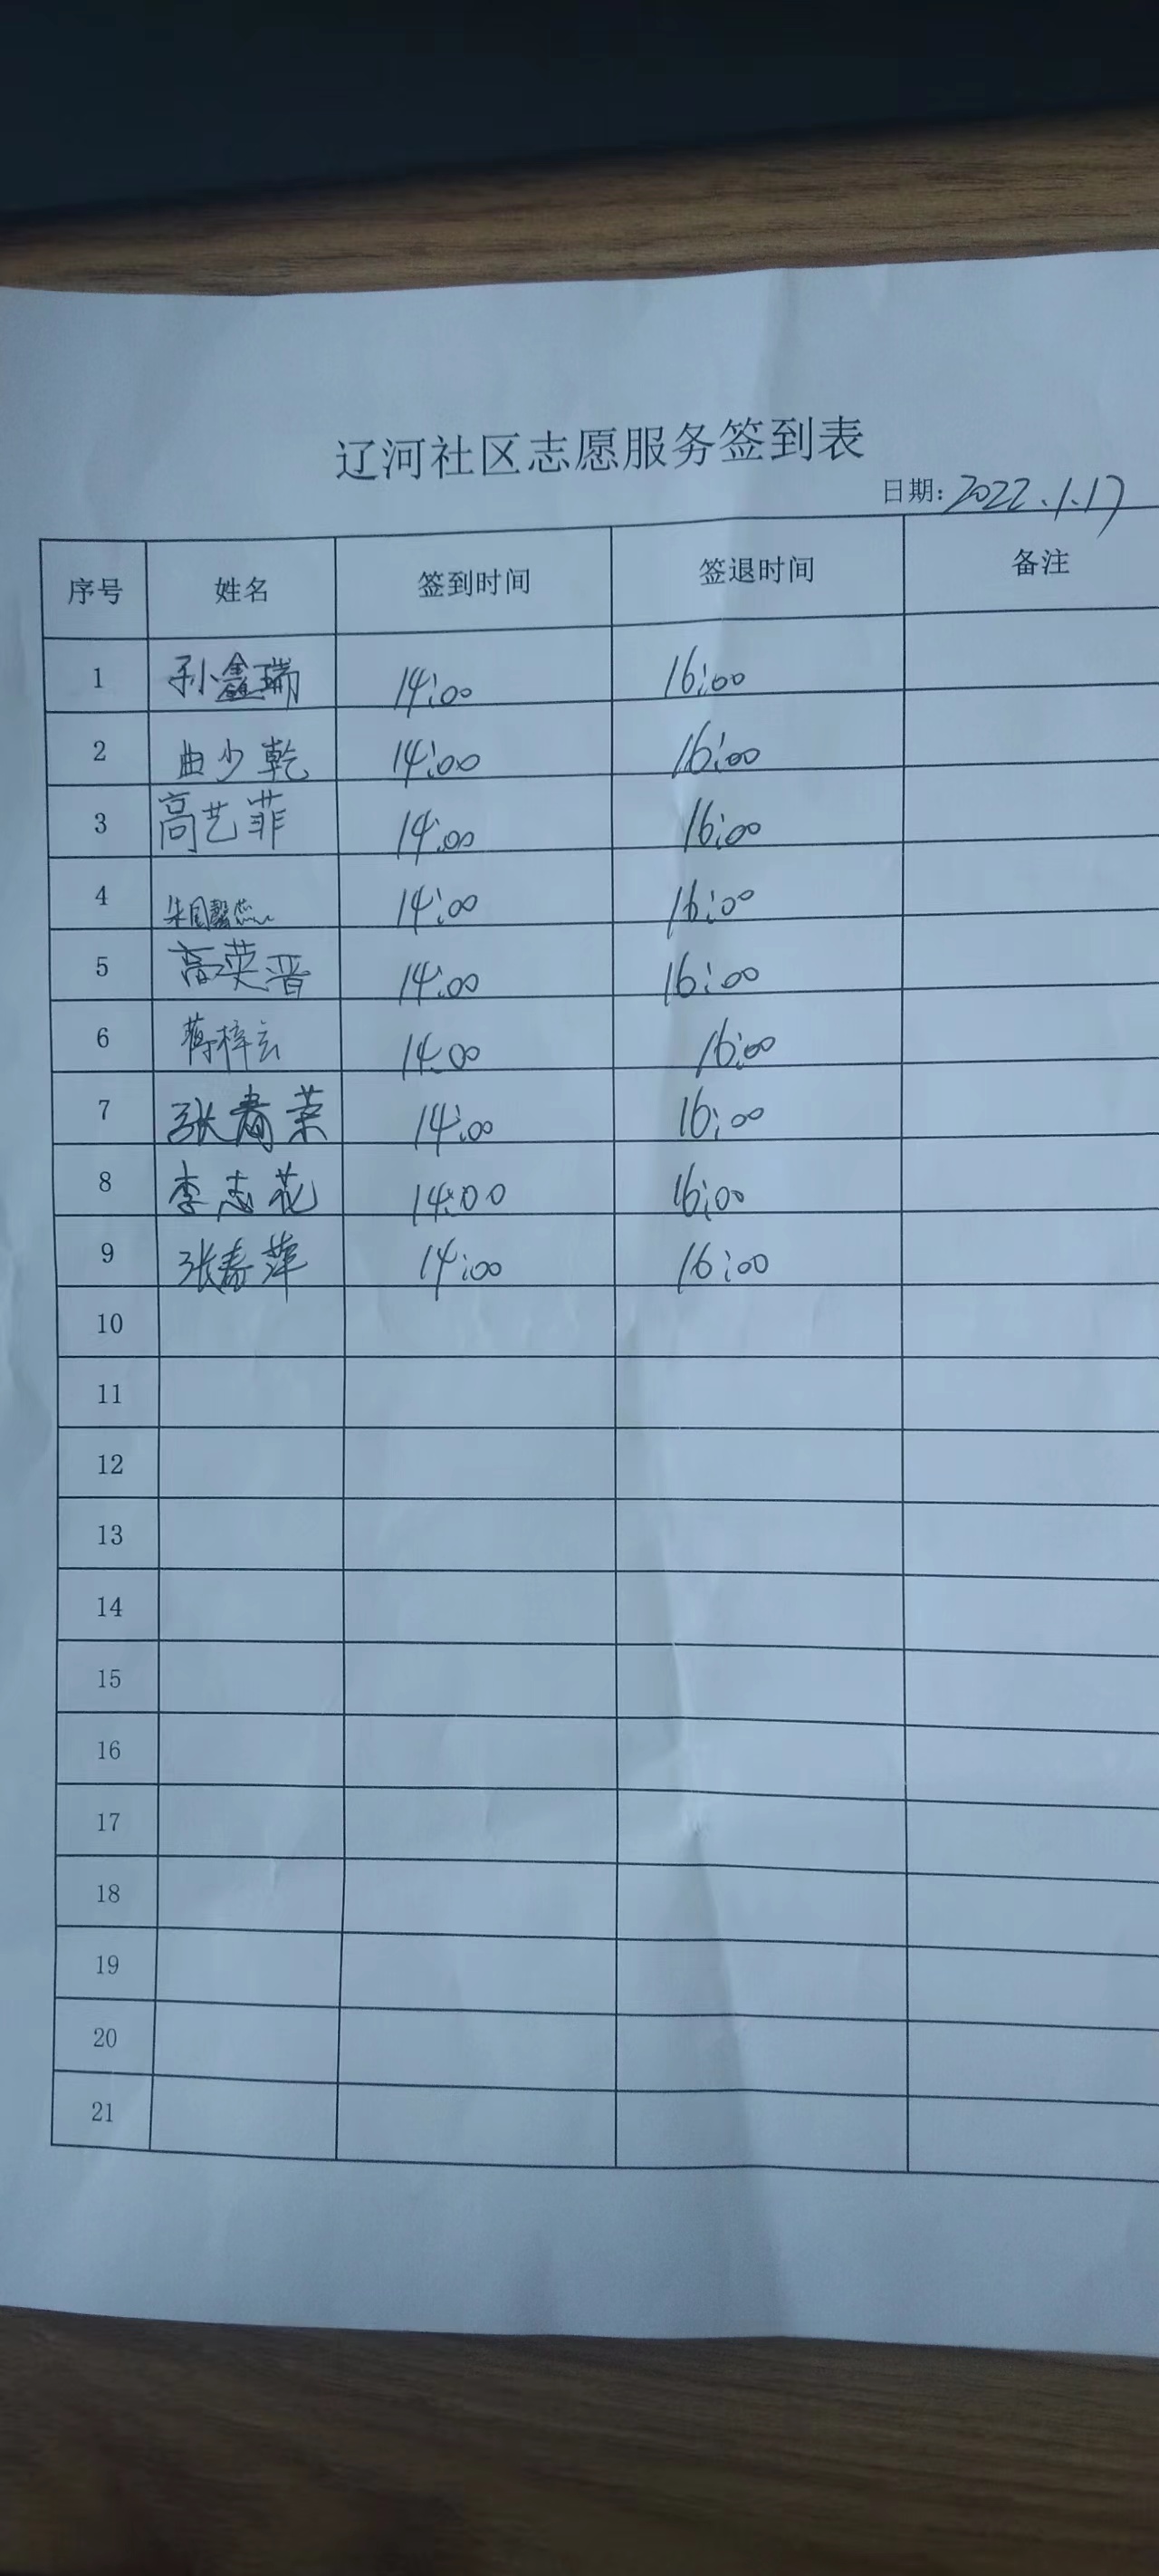 辽河社区志愿服务签到表
日期: 2022.1.17
序号 姓名 签到时间 签退时间 备注
1 孙鑫瑞 14:00 16:00
2 曲少乾 14:00 16:00
3 高艺菲 14:00 16:00
4 14:00 16:00
5 高荧晋 14:00 16:00
6 蒋梓玄 14:00 16:00
7 张春荣 14:00 16:00
8 李志花 14:00 16:00
9 张春萍 14:00 16:00
10
11
12
13
14
15
16
17
18
19
20
21